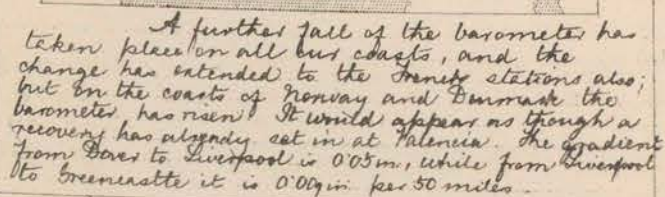 A further fall of the barometer has
taken place on all our coasts, and the
change has extended to the French stations also;
but on the coasts of Norway and Denmark the
barometer, has risen. It would appear as though a
recovery has already set in at Valencia. The gradient
from Dover to Liverpool is 0.05 in, while from Liverpool
to Greencastle it is 0.09 in per 50 miles.